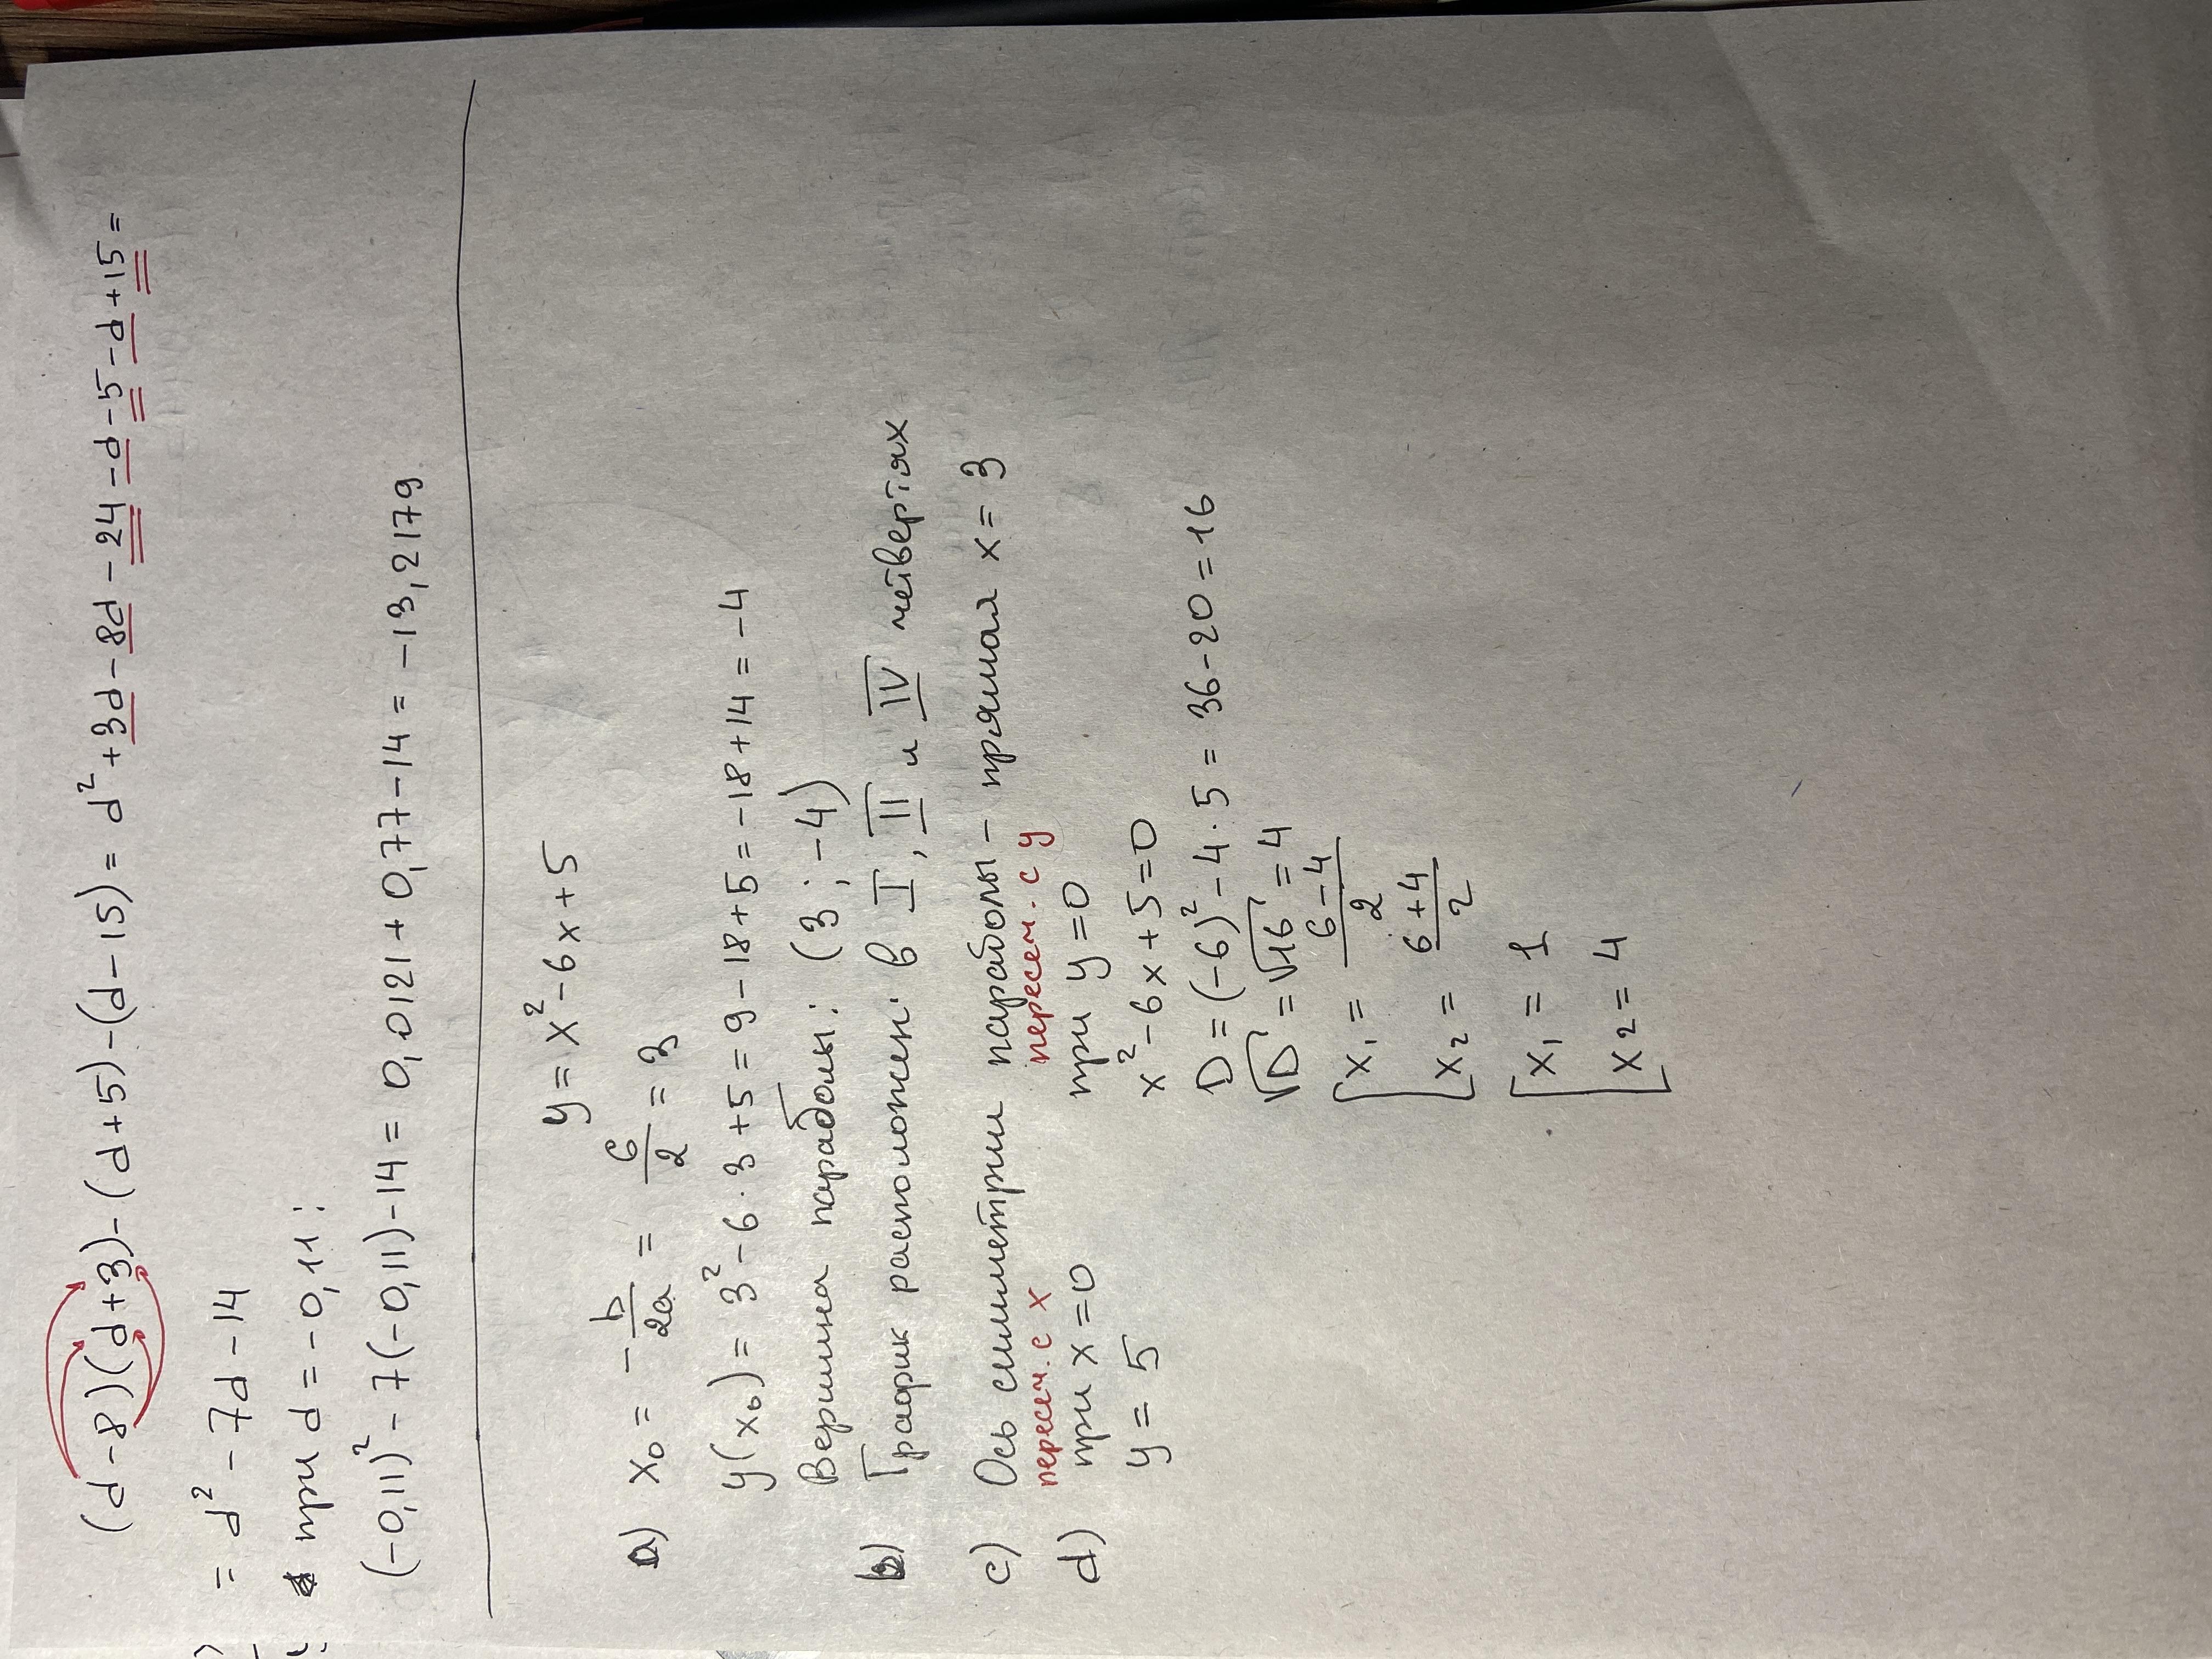 (d-8)(d+3)-(d+5)-(d-15)=d²+3d-8d-24-d-5-d+15=
=d²-7d-14
при d=-0,11:
(-0,11)²-7(-0,11)-14=0,0121+0,77-14=-13,2179
y=x²-6x+5
a) x₀=-b/2a=6/2=3
y(x₀)=3²-6·3+5=9-18+5=-18+14=-4
Вершина параболы: (3;-4)
b) График расположен: в I, II и IV четвертях
c) Ось симметрии параболы - прямая x=3
пересеч. с x пересеч. с y
d) при x=0 при y=0
y=5 x²-6x+5=0
D=(-6)²-4·5=36-20=16
√D=√16=4
[x₁=6-4/2
[x₂=6+4/2
[x₁=1
[x₂=4